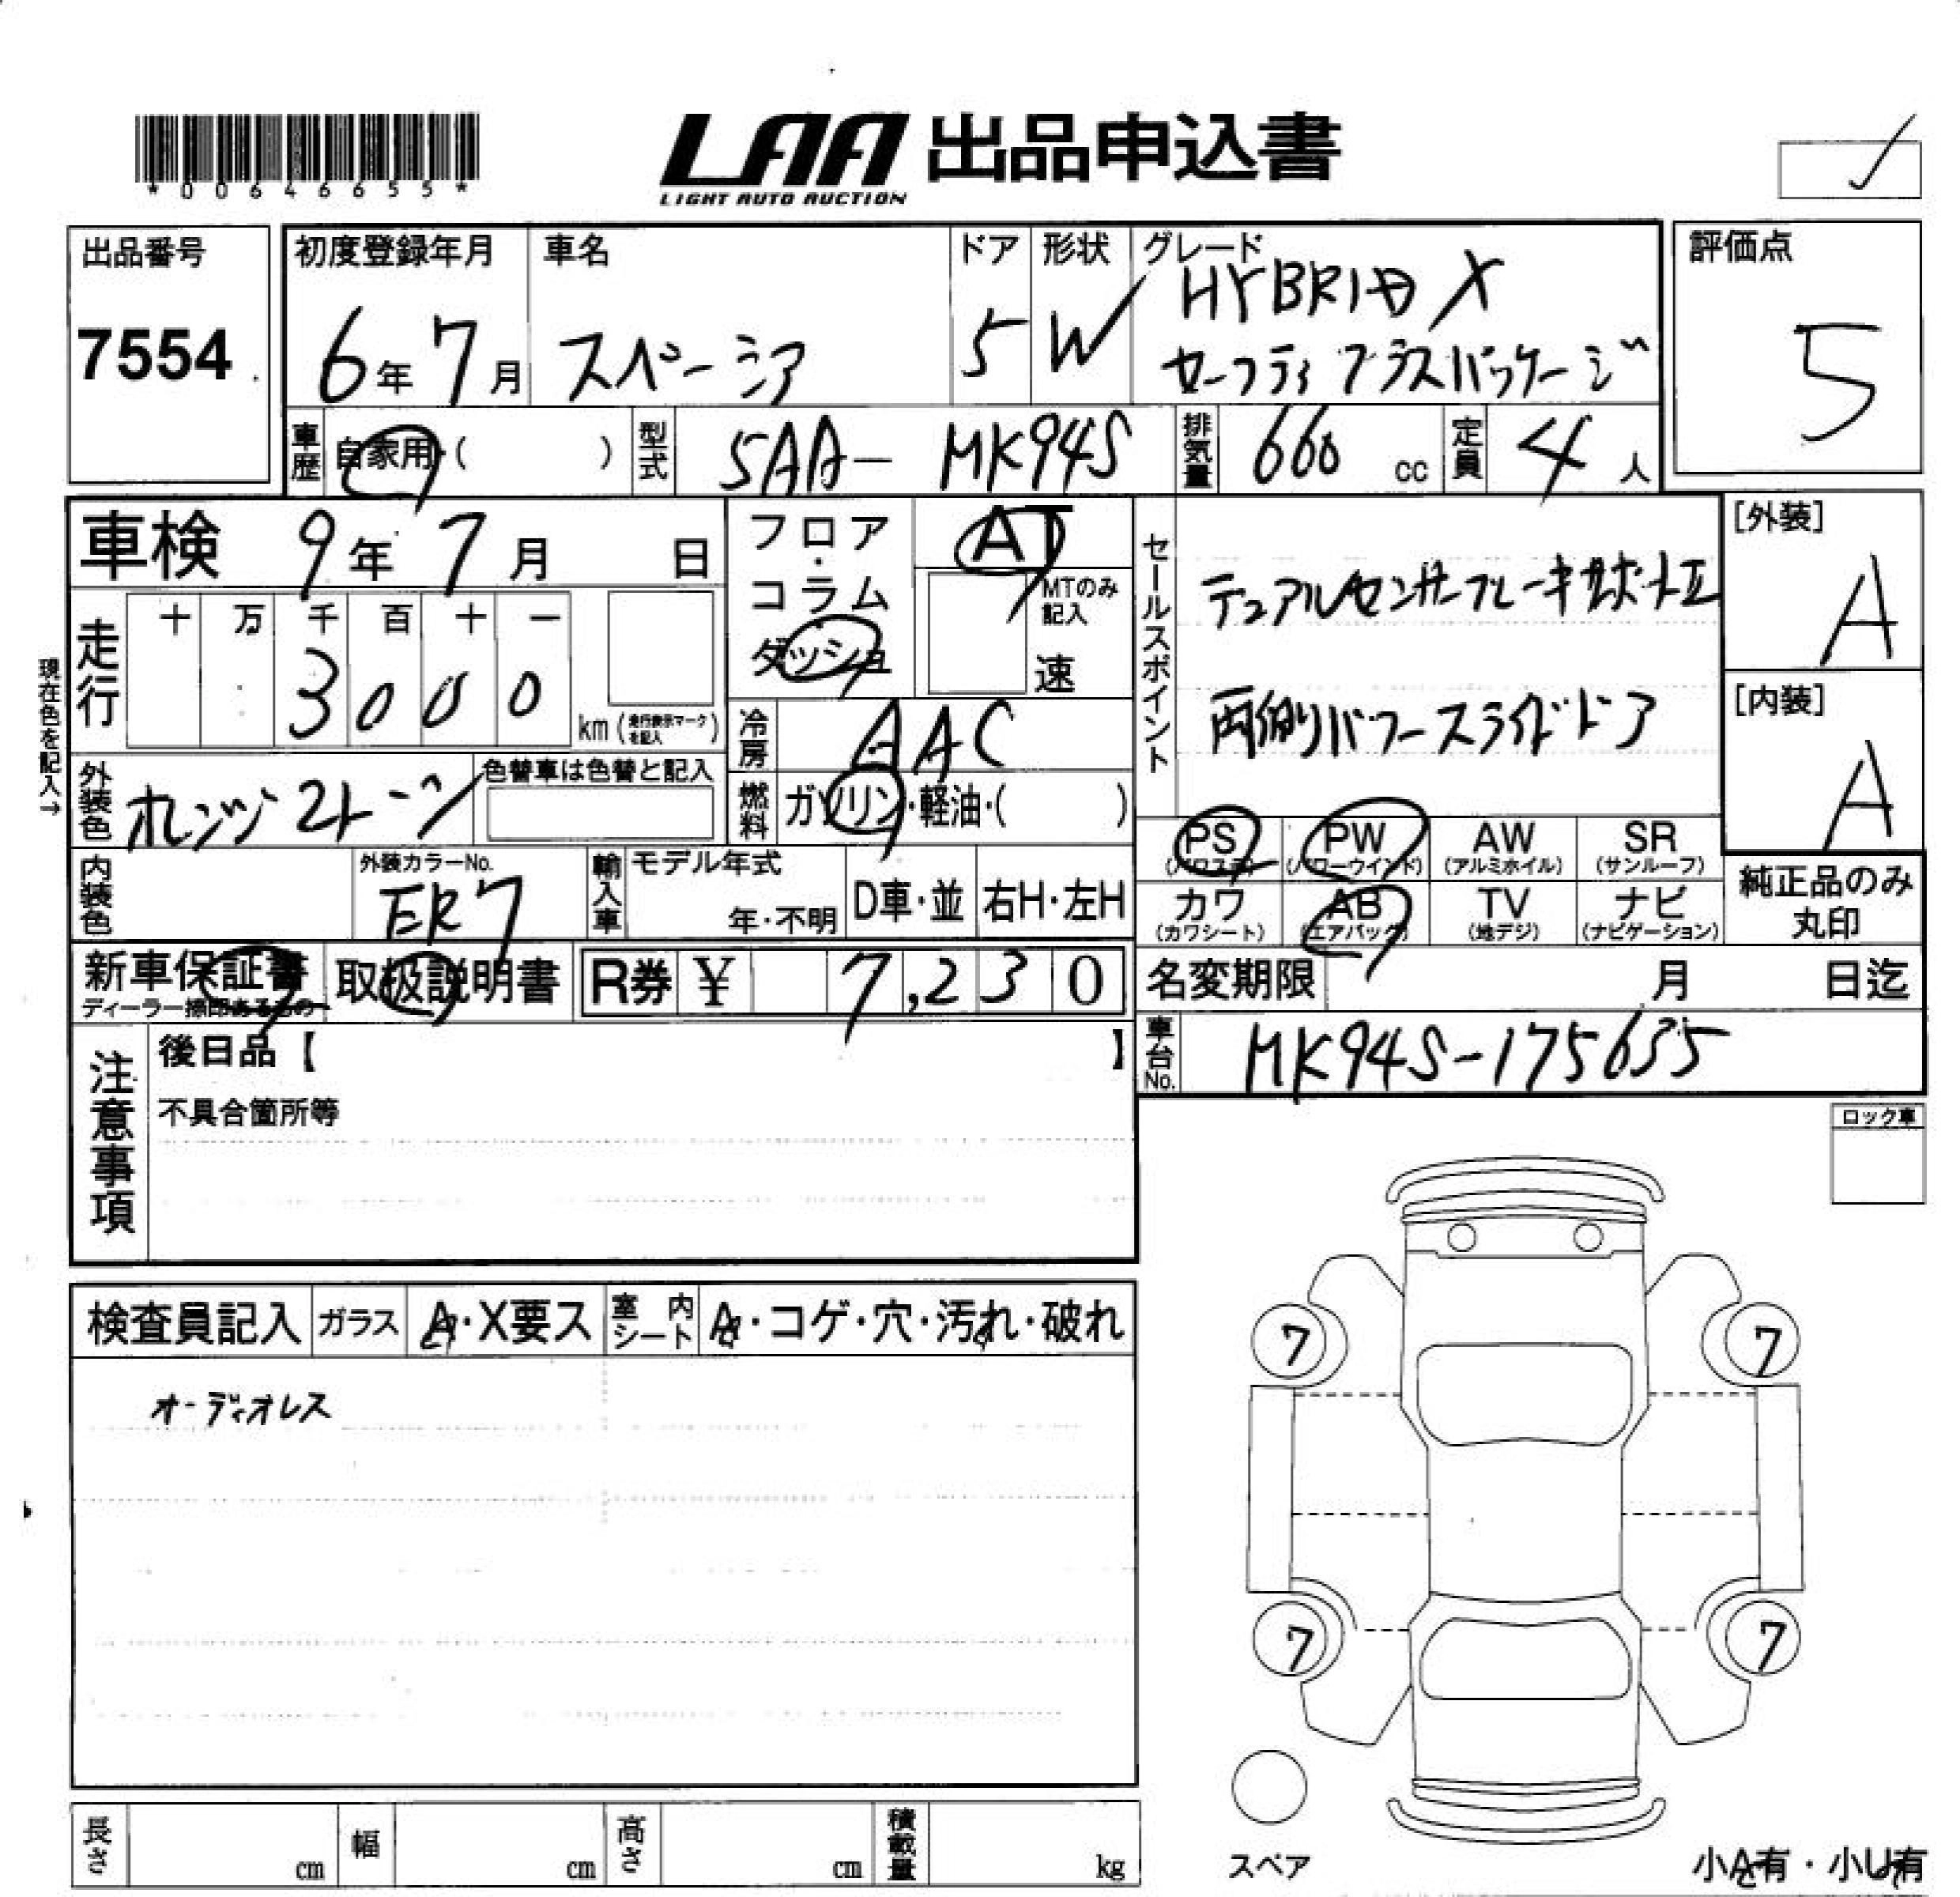 *00646655*
LAA 出品申込書
LIGHT AUTO AUCTION
出品番号
7554
初度登録年月
6年7月
車名
スペーシア
ドア
5
形状
W
グレード
HYBRID X
セーフティプラスパッケージ
評価点
5
車歴
自家用・( )
型式
5AA- MK94S
排気量
660 cc
定員
4 人
車検 9年7月 日
フロア・コラム・ダッシュ
AT
MTのみ記入
速
セールスポイント
デュアルセンサーブレーキサポートⅡ
両側パワースライドドア
[外装]
A
[内装]
A
現在色を記入→
走行
十 万 千 百 十 一
3 0 0 0
km (走行表示マークを記入)
冷房
AAC
外装色
オレンジ2トーン
色替車は色替と記入
燃料
ガソリン・軽油・( )
PS
(パワステ)
PW
(パワーウインド)
AW
(アルミホイル)
SR
(サンルーフ)
カワ
(カワシート)
AB
(エアバック)
TV
(地デジ)
ナビ
(ナビゲーション)
純正品のみ
丸印
内装色
外装カラーNo.
ER7
輸入車
モデル年式
年・不明
D車・並
右H・左H
新車保証書
ディーラー捺印あるもの
取扱説明書
R券 ¥ 7,230
名変期限 月 日迄
車台No.
MK94S-175655
注意事項
後日品【 】
不具合箇所等
ロック車
検査員記入
ガラス
A・X要ス
室内シート
A・コゲ・穴・汚れ・破れ
オーディオレス
7
7
7
7
スペア
長さ cm
幅 cm
高さ cm
積載量 kg
小A有・小U有